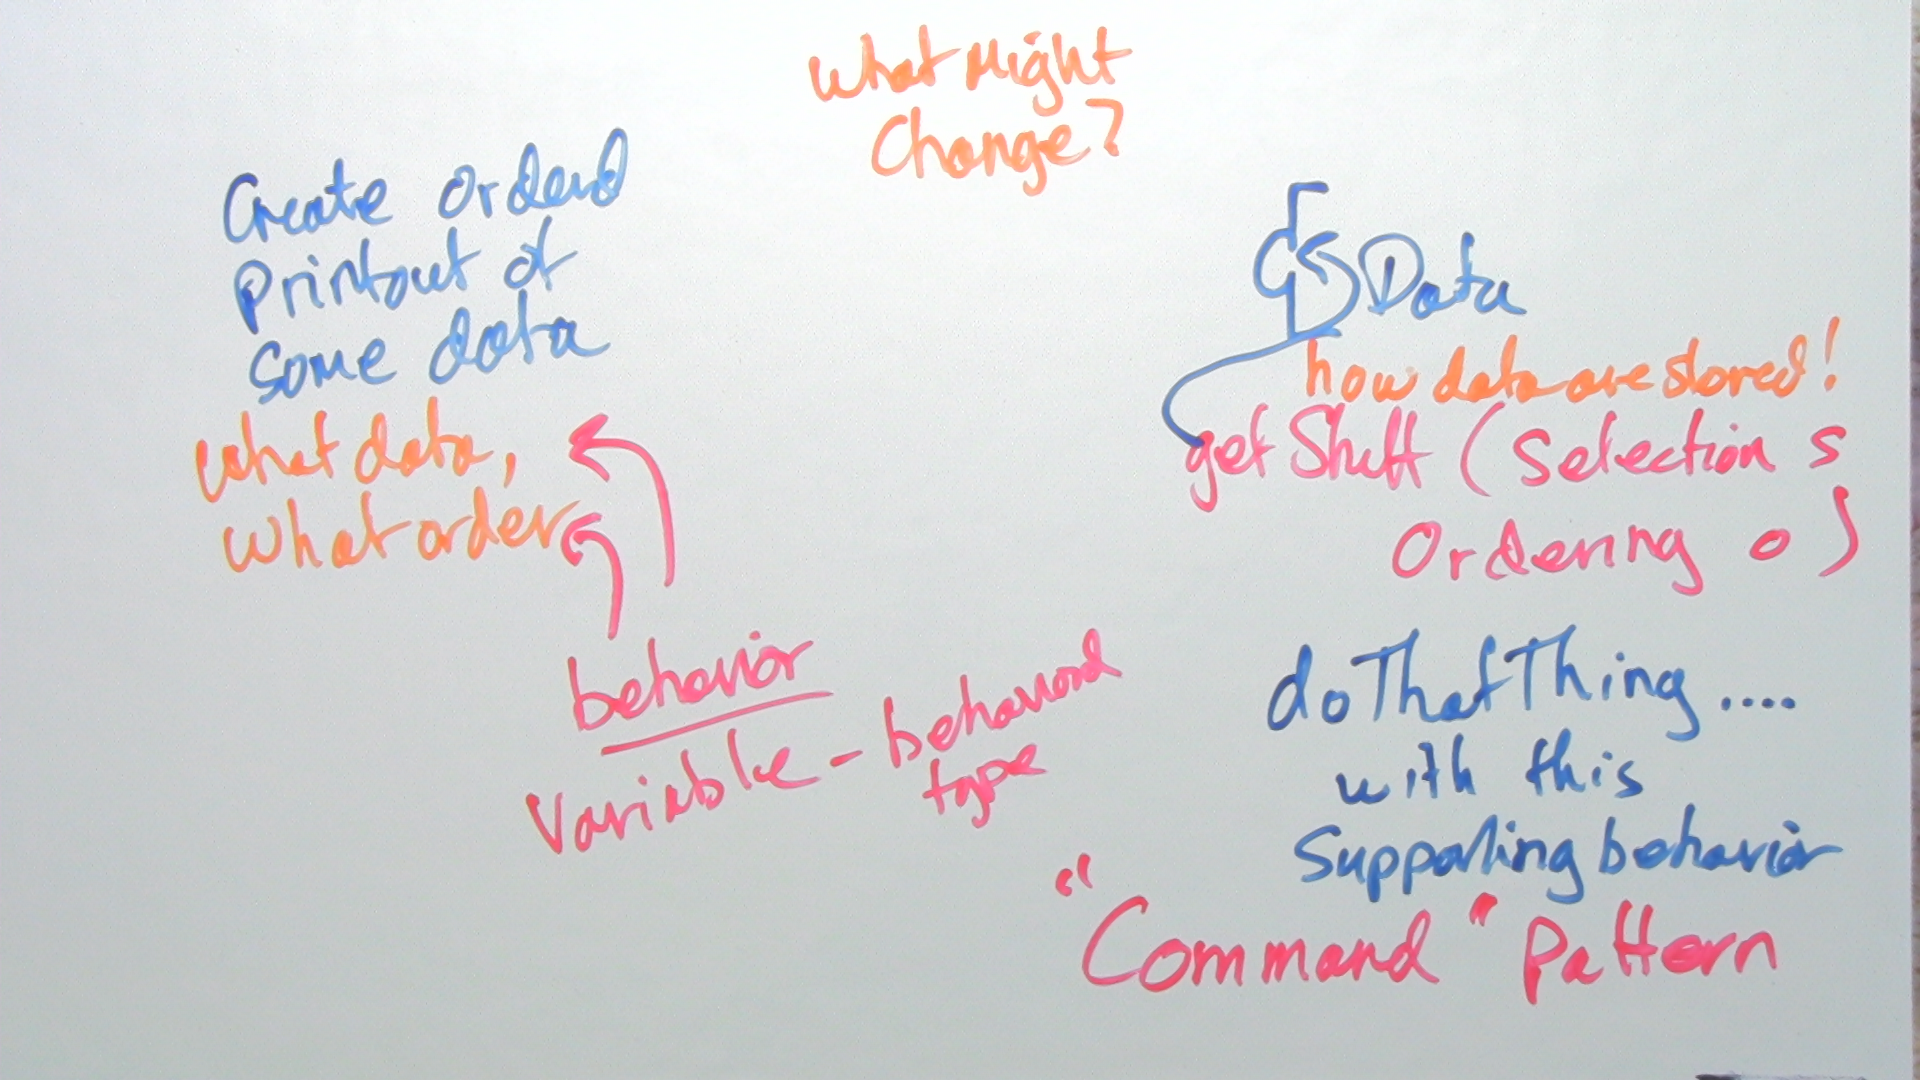 What Might
Change?
Create ordered
printout of
some data
what data,
what order
behavior
variable - behavioral
type
Data
how data are stored!
getStuff (Selection s
Ordering o)
doThatThing....
with this
Supporting behavior
"Command" Pattern